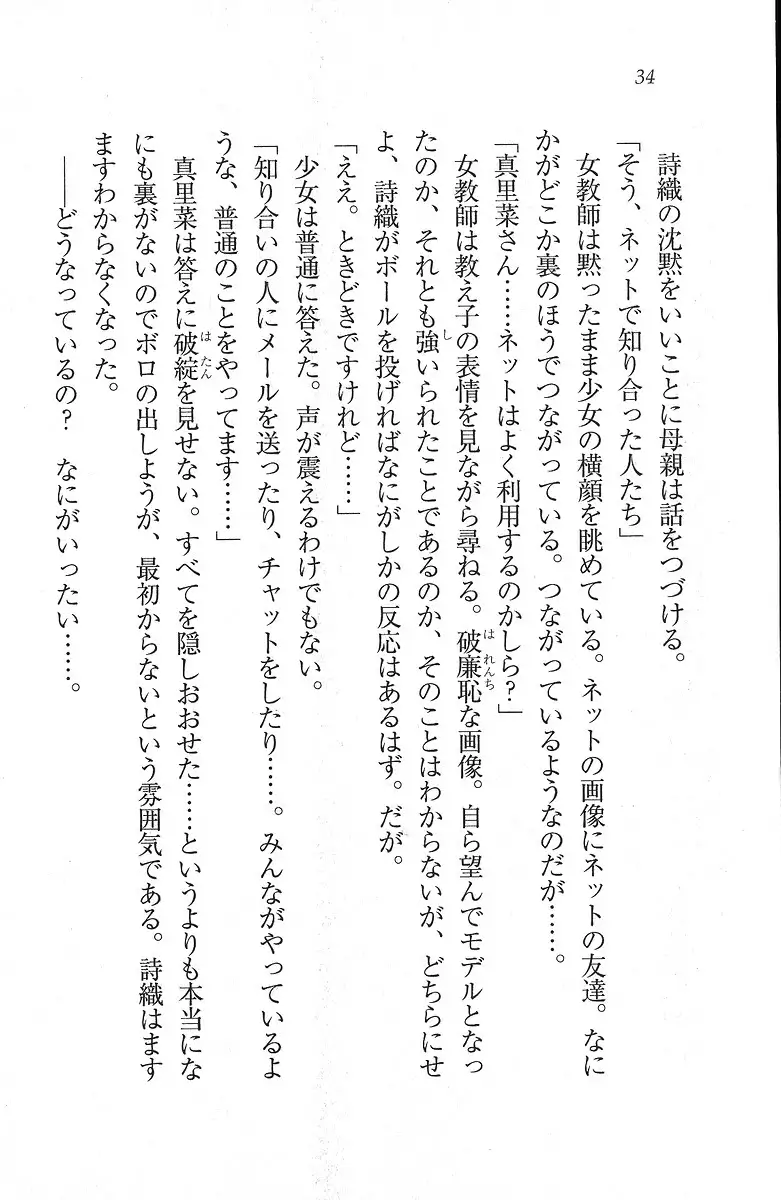 34
詩織の沈黙をいいことに母親は話をつづける。
「そう、ネットで知り合った人たち」
女教師は黙ったまま少女の横顔を眺めている。ネットの画像にネットの友達。なに
かがどこか裏のほうでつながっている。つながっているようなのだが……。
「真里菜さん……ネットはよく利用するのかしら？」
女教師は教え子の表情を見ながら尋ねる。破廉恥な画像。自ら望んでモデルとなっ
たのか、それとも強いられたことであるのか、そのことはわからないが、どちらにせ
よ、詩織がボールを投げればなにがしかの反応はあるはず。だが。
「ええ。ときどきですけれど……」
少女は普通に答えた。声が震えるわけでもない。
「知り合いの人にメールを送ったり、チャットをしたり……。みんながやっているよ
うな、普通のことをやってます……」
真里菜は答えに破綻を見せない。すべてを隠しおおせた……というよりも本当にな
にも裏がないのでボロの出しようが、最初からないという雰囲気である。詩織はます
ますわからなくなった。
――どうなっているの？　なにがいったい……。